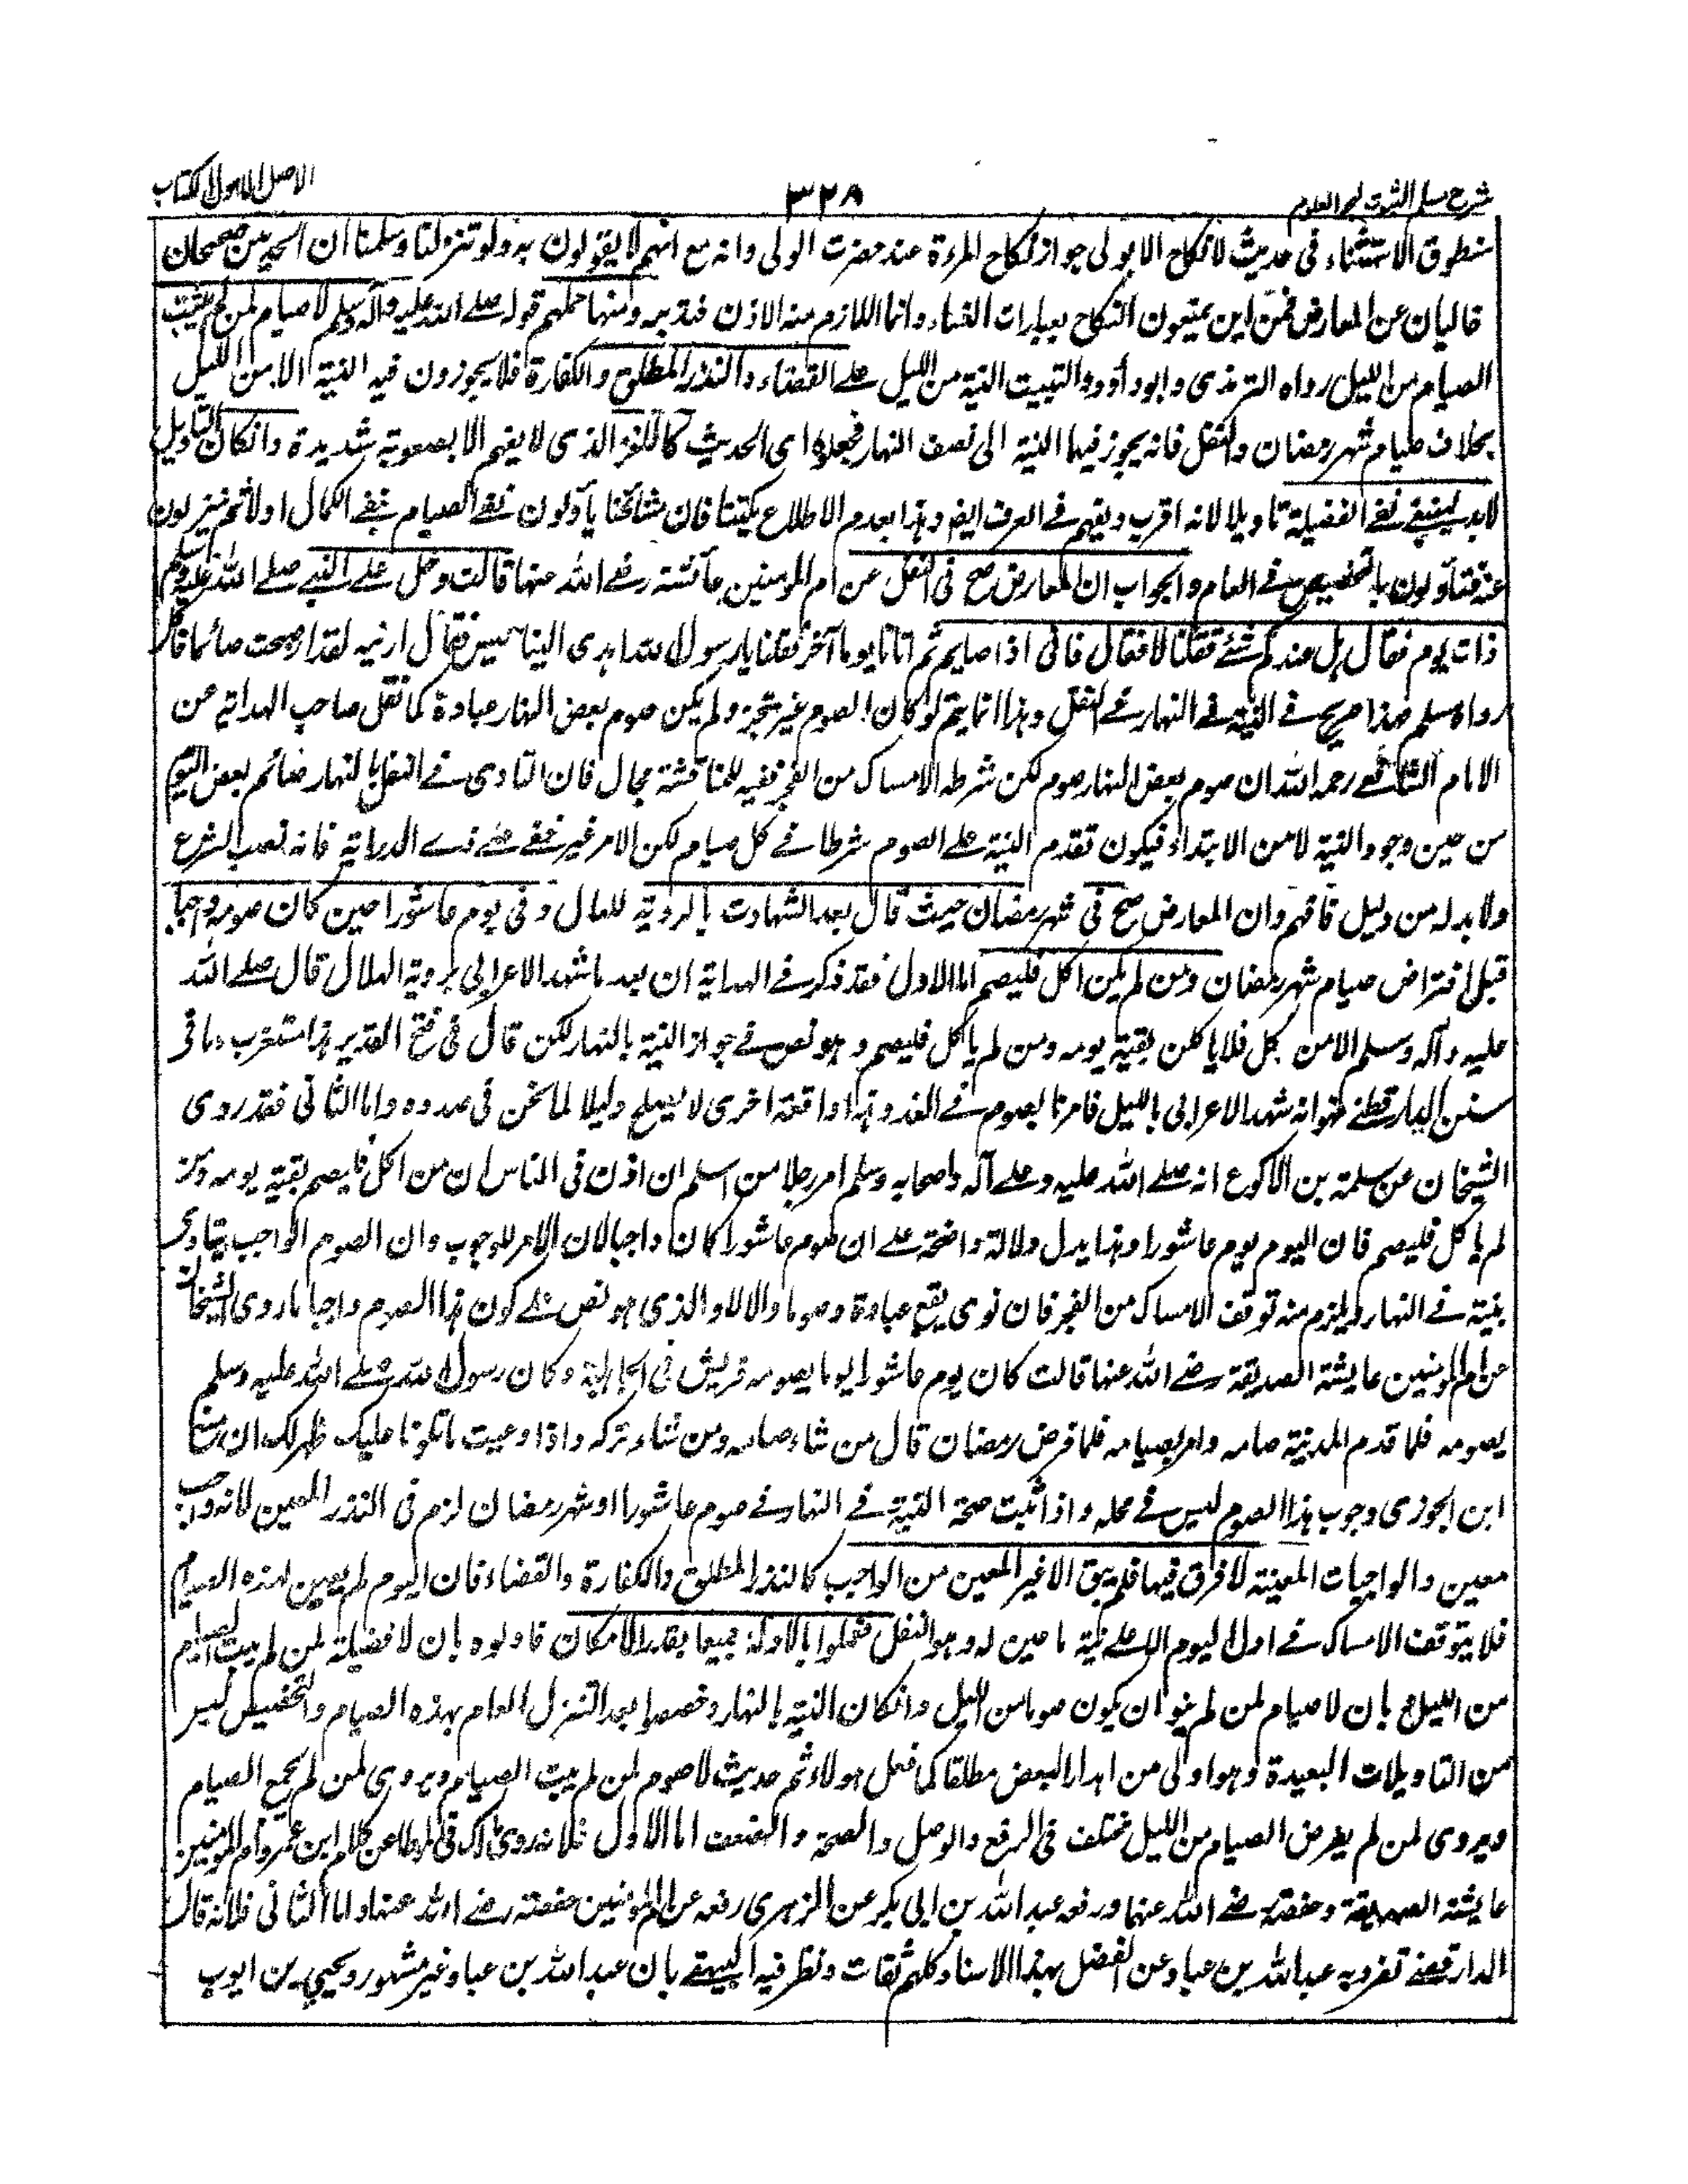 شرح مسلم الثبوت لبحر العلوم
٣٢٨
الاصل الاول الكتاب
منطوق الاستثناء فى حديث لا نكاح الا بولى جواز نكاح المرءة عند حضرت الولى وانه مع انهم لا يقولون به ولو تنزلنا وسلمنا ان الحديثين صحيحان
خاليان عن المعارض فمن اين يمنعون النكاح بعبارات النساء وانما اللازم منه الاذن فتدبر ومنها حملهم قوله صلى الله عليه وآله وسلم لا صيام لمن لم يبيت
الصيام من الليل رواه الترمذى وابو داؤد والتبييت النية من الليل على القضاء والنذر المطلق والكفارة فلا يجوزون فيه النية الا من الليل
بخلاف صيام شهر رمضان والنفل فانه يجوز فيها النية الى نصف النهار فجعلوه اى الحديث كاللغز الذى لا يفهم الا بصعوبة شديدة وانكان التاويل
لابد فينبغى نفى الفضيلة تاويلا لانه اقرب ويفهم فى العرف ايضا وهذا بعدم الاطلاع بكتبنا فان مشائخنا ياولون نفى الصيام بنفى الكمال اولا ثم ينزلون
عنه فيتأولون بالتخصيص فى العام والجواب ان المعارض صح فى النفل عن ام المومنين عائشة رضى الله عنها قالت دخل على النبى صلى الله عليه وسلم
ذات يوم فقال هل عندكم شئ فقلنا لا فقال فانى اذا صايم ثم اتانا يوما آخر فقلنا يا رسول الله اهدى الينا حيس فقال ارنيه لقد اصبحت صائما فاكل
رواه مسلم هذا صريح فى النية فى النهار فى النفل وهذا انما يتم لو كان الصوم غير متجز ولم يكن صوم بعض النهار عبادة كما نقل صاحب الهداية عن
الامام الشافعى رحمه الله ان صوم بعض النهار صوم لكن شرطه الامساك من الفجر ففيه للمناقشة مجال فان التادى فى النفل بالنهار صائم بعض اليوم
من حين وجود النية لا من الابتداء فيكون تقدم النية على الصوم شرطا فى كل صيام لكن الامر غير خفى على ذى الدراية فانه نصب الشرع
ولا بد له من دليل فافهم وان المعارض صح فى شهر رمضان حيث قال بعد الشهادت بالروية للهلال وفى يوم عاشورا حين كان صومه واجبا
قبل افتراض صيام شهر رمضان ومن لم يكن اكل فليصم اما الاول فقد ذكر فى الهداية ان بعد ما شهد الاعرابى بروية الهلال قال صلى الله
عليه وآله وسلم الا من اكل فلا ياكلن بقية يومه ومن لم ياكل فليصم وهو نص فى جواز النية بالنهار لكن قال فى فتح القدير هذا مستغرب وما فى
سنن الدارقطنى فهو انه شهد الاعرابى بالليل فامرنا بصوم فى الغد وهذا واقعة اخرى لا يصلح دليلا لما نحن فى صدده واما الثانى فقد روى
الشيخان عن سلمة بن الاكوع انه صلى الله عليه وعلى آله واصحابه وسلم امر رجلا من اسلم ان اذن فى الناس ان من اكل فليصم بقية يومه ومن
لم ياكل فليصم فان اليوم يوم عاشورا وهذا يدل دلالة واضحة على ان صوم عاشورا كان واجبا لان الامر للوجوب وان الصوم الواجب يتادى
بنية فى النهار ويلزم منه توقف الامساك من الفجر فان نوى يقع عبادة وصوما والا لا والذى هو نص على كون هذا الصوم واجبا ما روى الشيخان
عن ام المومنين عايشة الصديقة رضى الله عنها قالت كان يوم عاشورا يوما يصومه قريش فى الجاهلية وكان رسول الله صلى الله عليه وسلم
يصومه فلما قدم المدينة صامه وامر بصيامه فلما فرض رمضان قال من شاء صامه ومن شاء تركه واذا وعيت ما تلونا عليك ظهر لك ان منع
ابن الجوزى وجوب هذا الصوم ليس فى محله واذا ثبت صحة النية فى النهار فى صوم عاشورا او شهر رمضان لزم فى النذر المعين لانه واجب
معين والواجبات المعينة لا فرق فيها فلم يبق الا غير المعين من الواجب كالنذر المطلق والكفارة والقضاء فان اليوم لم يعين لهذه الصيام
فلا يتوقف الامساك فى اول اليوم الا على نية ما عين له وهو النفل فعملوا بالادلة جميعا بقدر الامكان فاولوه بان لا فضيلة لمن لم يبيت الصيام
من الليل او بان لا صيام لمن لم ينو ان يكون صوما من الليل وانكان النية بالنهار وخصصوا بعد التنزل العام بهذه الصيام والتخصيص ليس
من التاويلات البعيدة وهو اولى من اهدار البعض مطلقا كما فعل هولاء ثم حديث لا صوم لمن لم يبيت الصيام ويروى لمن لم يجمع الصيام
ويروى لمن لم يفرض الصيام من الليل مختلف فى الرفع والوصل والصحة والضعف اما الاول فلانه روى مالك فى الموطا عن كلام ابن عمر وام المومنين
عايشة الصديقة وحفصة رضى الله عنهما ورفعه عبد الله بن ابى بكر عن الزهرى رفعه عن ام المومنين حفصة رضى الله عنها واما الثانى فلانه قال
الدارقطنى تفرد به عبد الله بن عباد عن المفضل بهذا الاسناد وكلهم ثقات ونظر فيه البيهقى بان عبد الله بن عباد غير مشهور ويحيى بن ايوب